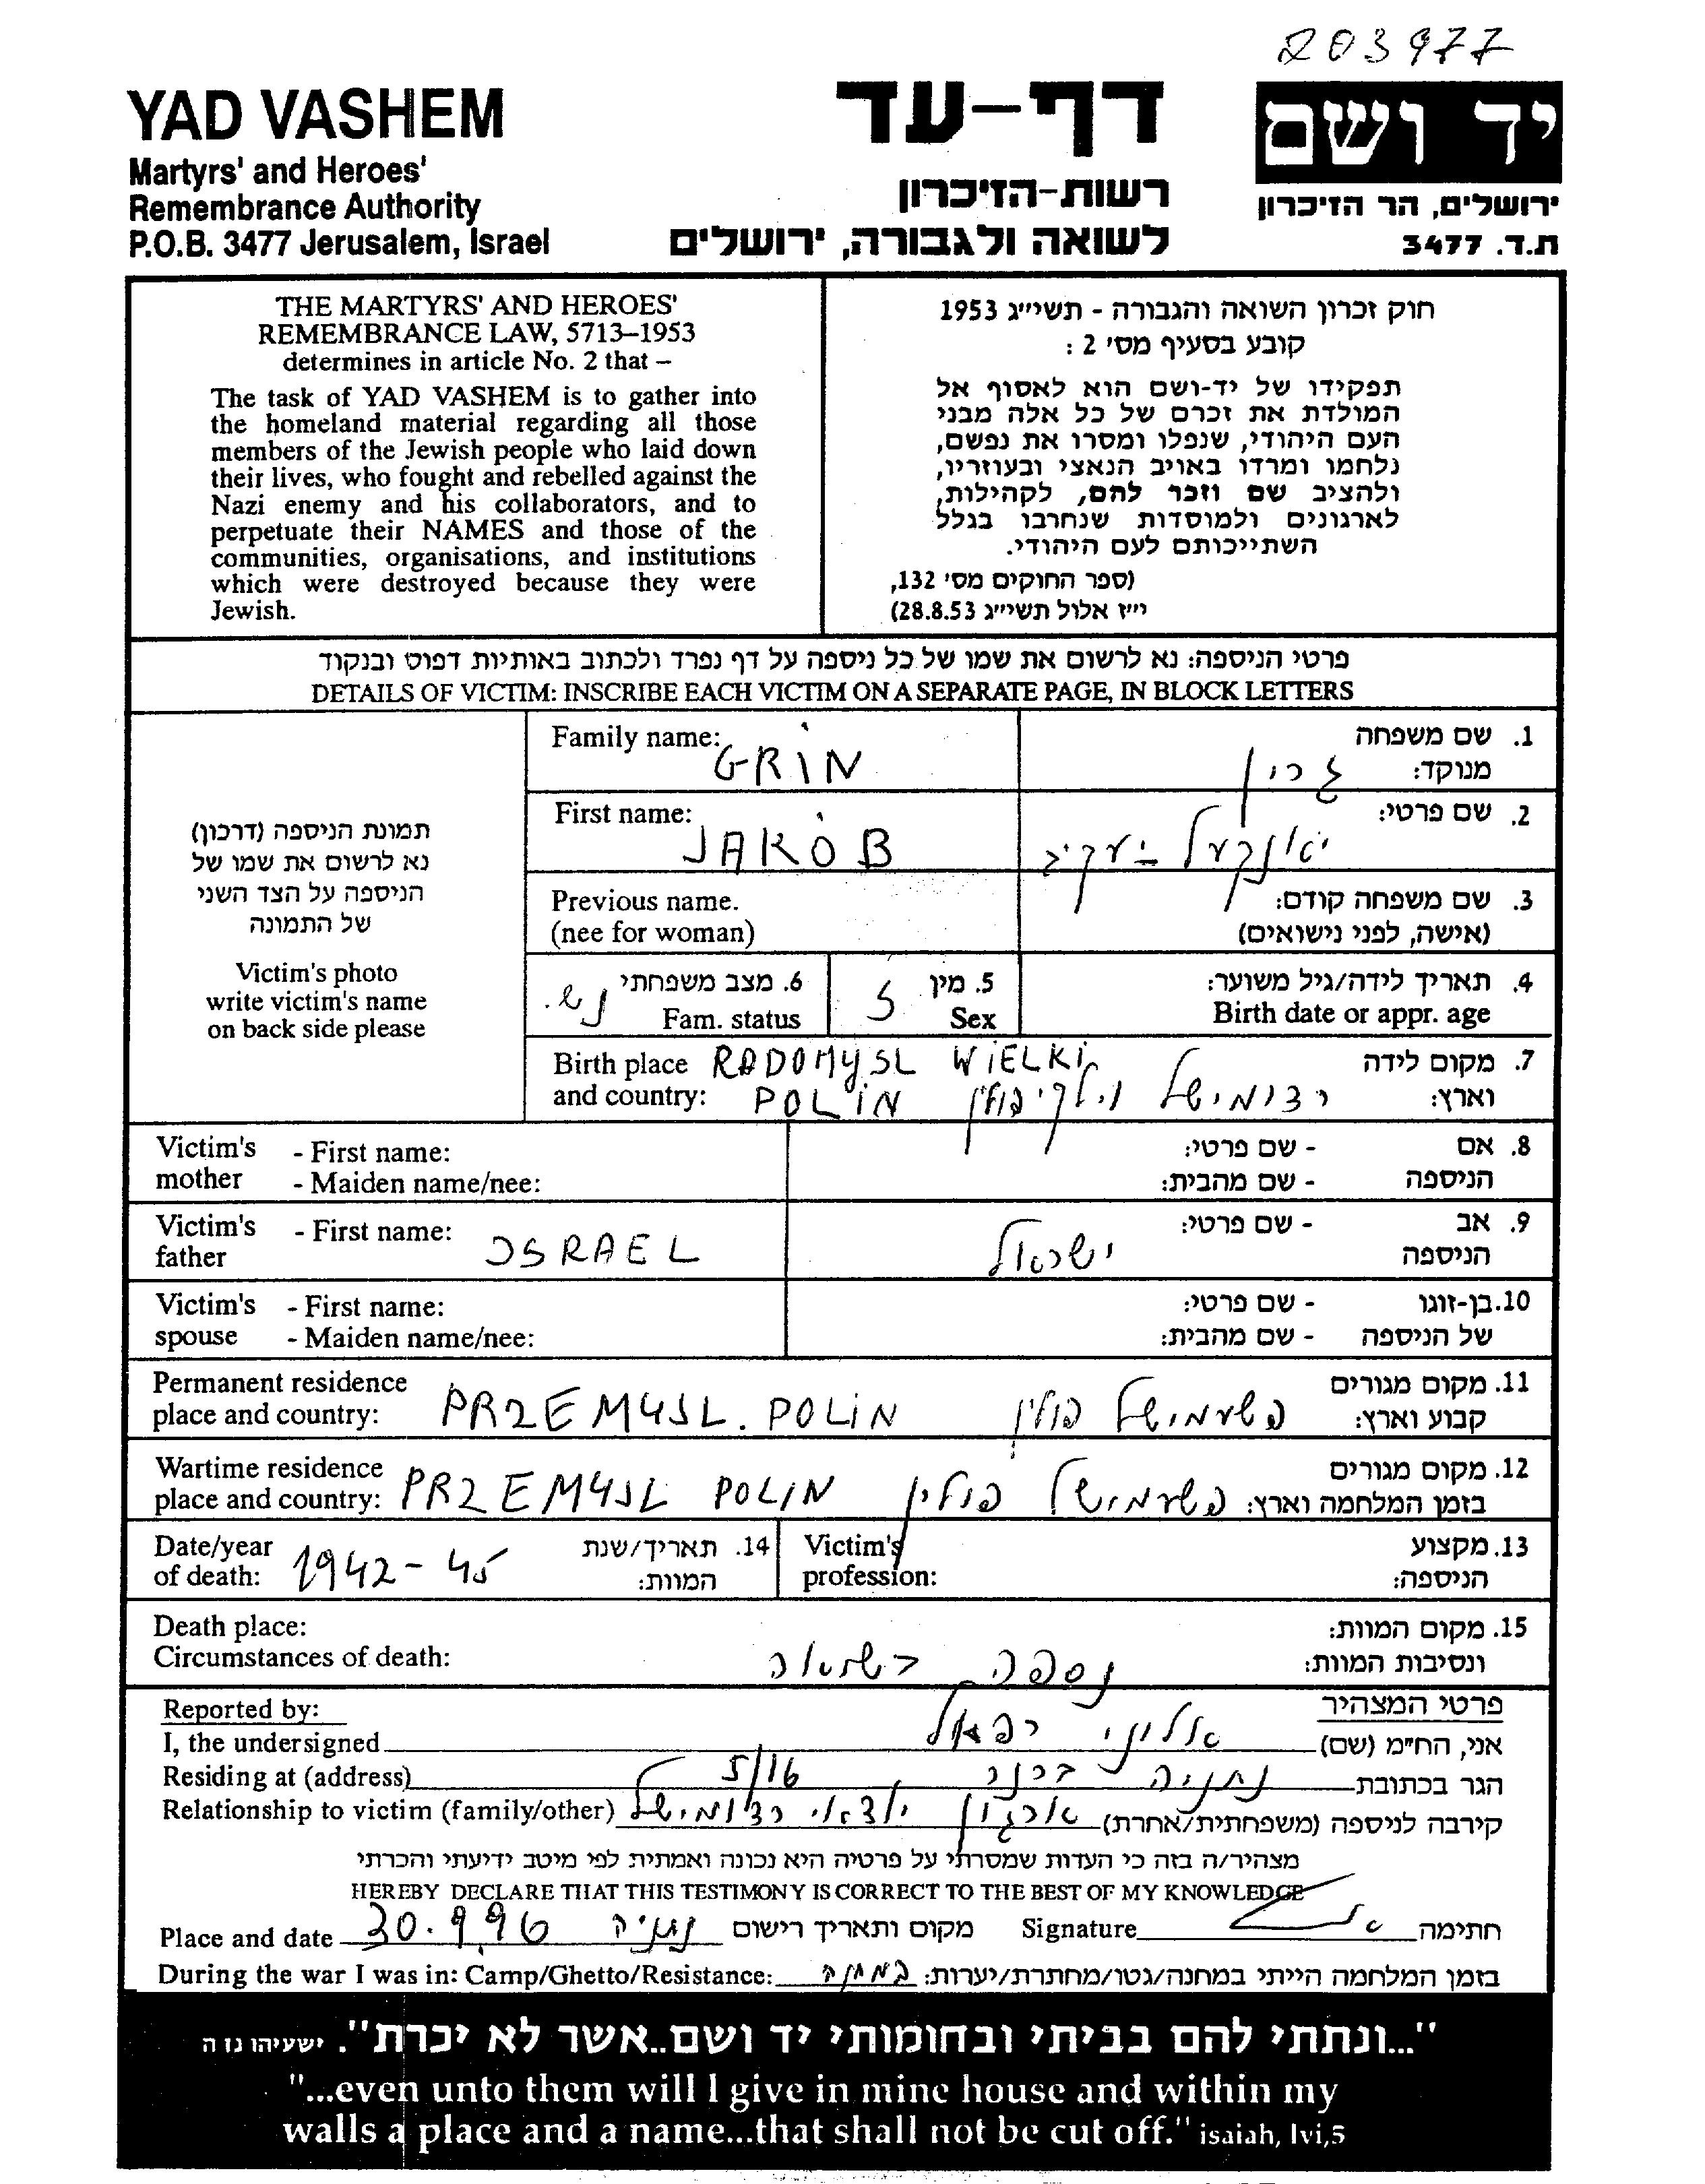 203977
YAD VASHEM
Martyrs' and Heroes'
Remembrance Authority
P.O.B. 3477 Jerusalem, Israel
דף-עד
רשות-הזיכרון
לשואה ולגבורה, ירושלים
יד ושם
ירושלים, הר הזיכרון
ת.ד. 3477
THE MARTYRS' AND HEROES'
REMEMBRANCE LAW, 5713–1953
determines in article No. 2 that –
The task of YAD VASHEM is to gather into
the homeland material regarding all those
members of the Jewish people who laid down
their lives, who fought and rebelled against the
Nazi enemy and his collaborators, and to
perpetuate their NAMES and those of the
communities, organisations, and institutions
which were destroyed because they were
Jewish.
חוק זכרון השואה והגבורה - תשי״ג 1953
קובע בסעיף מס׳ 2 :
תפקידו של יד-ושם הוא לאסוף אל
המולדת את זכרם של כל אלה מבני
העם היהודי, שנפלו ומסרו את נפשם,
נלחמו ומרדו באויב הנאצי ובעוזריו,
ולהציב שם וזכר להם, לקהילות,
לארגונים ולמוסדות שנחרבו בגלל
השתייכותם לעם היהודי.
(ספר החוקים מס׳ 132,
י״ז אלול תשי״ג 28.8.53)
פרטי הניספה: נא לרשום את שמו של כל ניספה על דף נפרד ולכתוב באותיות דפוס ובנקוד
DETAILS OF VICTIM: INSCRIBE EACH VICTIM ON A SEPARATE PAGE, IN BLOCK LETTERS
תמונת הניספה (דרכון)
נא לרשום את שמו של
הניספה על הצד השני
של התמונה
Victim's photo
write victim's name
on back side please
Family name: GRIN
1. שם משפחה
מנוקד: גרין
First name: JAKOB
2. שם פרטי: יאנקעל יעקב
Previous name.
(nee for woman)
3. שם משפחה קודם:
(אישה, לפני נישואים)
6. מצב משפחתי נש.
Fam. status
5. מין ז
Sex
4. תאריך לידה/גיל משוער:
Birth date or appr. age
Birth place RADOMYSL WIELKI
and country: POLIN
7. מקום לידה
וארץ: רדומישל וילקי פולין
Victim's mother - First name:
- Maiden name/nee:
8. אם הניספה - שם פרטי:
- שם מהבית:
Victim's father - First name: ISRAEL
9. אב הניספה - שם פרטי: ישראל
Victim's spouse - First name:
- Maiden name/nee:
10. בן-זוגו של הניספה - שם פרטי:
- שם מהבית:
Permanent residence
place and country: PRZEMYSL. POLIN
11. מקום מגורים
קבוע וארץ: פשעמישל פולין
Wartime residence
place and country: PRZEMYSL POLIN
12. מקום מגורים
בזמן המלחמה וארץ: פשעמישל פולין
Date/year
of death: 1942-45
14. תאריך/שנת
המוות:
Victim's
profession:
13. מקצוע
הניספה:
Death place:
Circumstances of death:
15. מקום המוות:
ונסיבות המוות:
נספה בשואה
Reported by:
פרטי המצהיר
I, the undersigned
אני, הח״מ (שם) אלוני רפאל
Residing at (address)
הגר בכתובת נתניה 5/16
Relationship to victim (family/other)
קירבה לניספה (משפחתית/אחרת) ארגון יוצאי רדומישל
מצהיר/ה בזה כי העדות שמסרתי על פרטיה היא נכונה ואמתית לפי מיטב ידיעתי והכרתי
HEREBY DECLARE THAT THIS TESTIMONY IS CORRECT TO THE BEST OF MY KNOWLEDGE
Place and date 30.9.96 נתניה מקום ותאריך רישום
Signature חתימה
During the war I was in: Camp/Ghetto/Resistance:
בזמן המלחמה הייתי במחנה/גטו/מחתרת/יערות: במחנה
"...ונתתי להם בביתי ובחומותי יד ושם..אשר לא יכרת". ישעיהו נו ה
"...even unto them will I give in mine house and within my
walls a place and a name...that shall not be cut off." isaiah, lvi,5